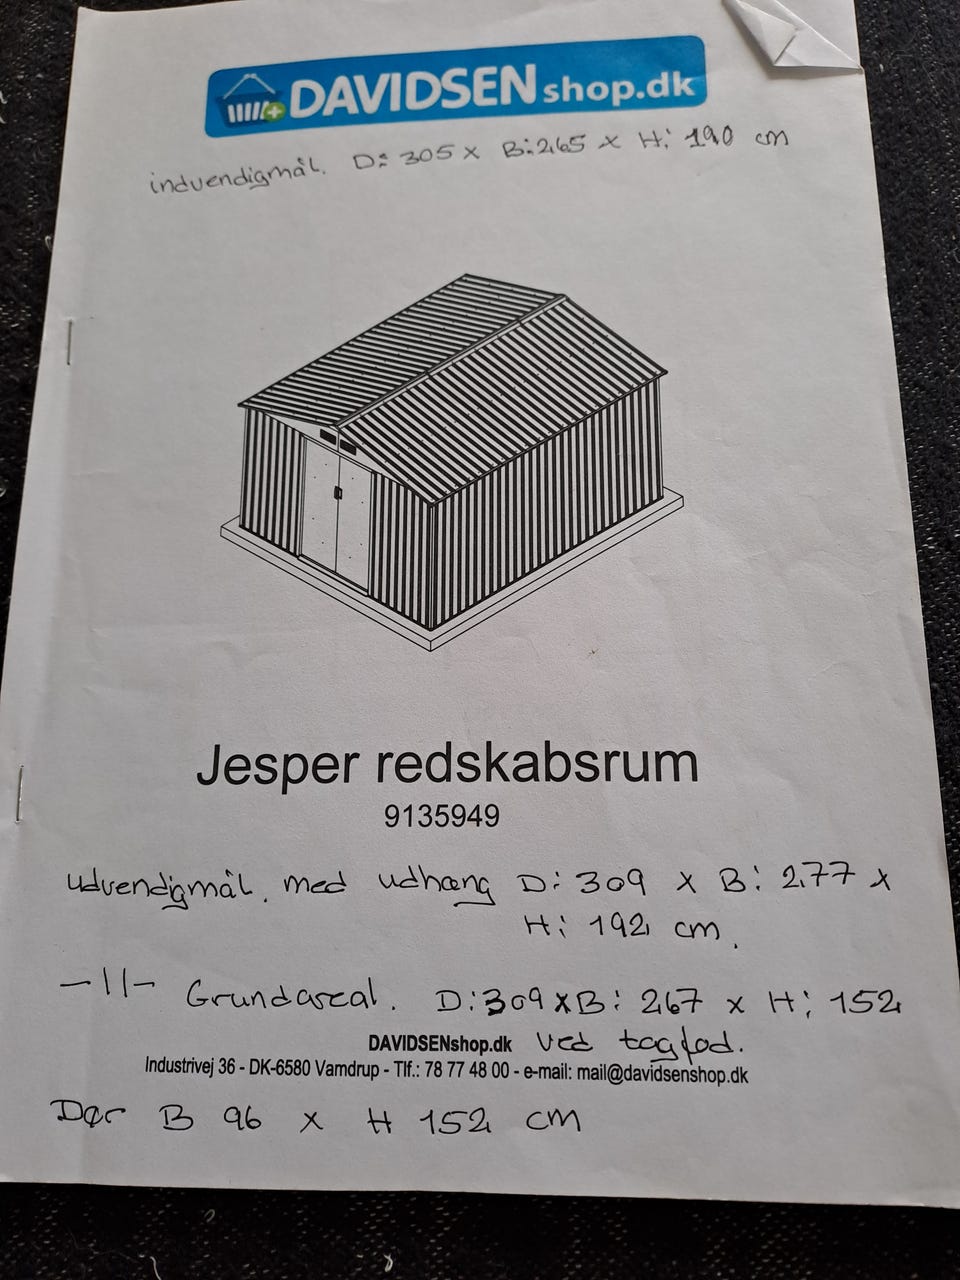 DAVIDSEN shop.dk
indvendigmål. D: 305 x B: 265 x H: 190 cm
Jesper redskabsrum
9135949
udvendigmål. med udhæng D: 309 x B: 277 x
H: 192 cm.
-11- Grundareal. D: 309 x B: 267 x H: 152
DAVIDSENshop.dk ved tagfod.
Industrivej 36 - DK-6580 Vamdrup - Tlf.: 78 77 48 00 - e-mail: mail@davidsenshop.dk
Dør B 96 x H 152 cm